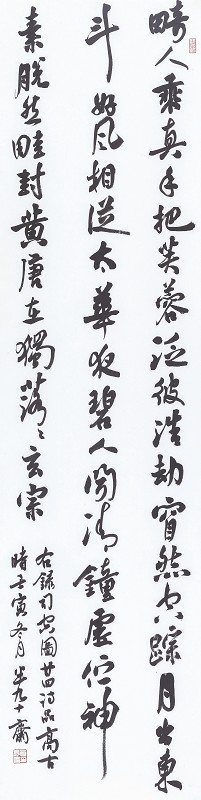 畸人乘真手把芙蓉泛彼浩劫窅然空踪月出東
斗好风相從太華夜碧人闻清鐘虚伫神
素脱然畦封黄唐在獨落々玄宗
右錄司空图廿四诗品高古
時壬寅冬月半九十斋